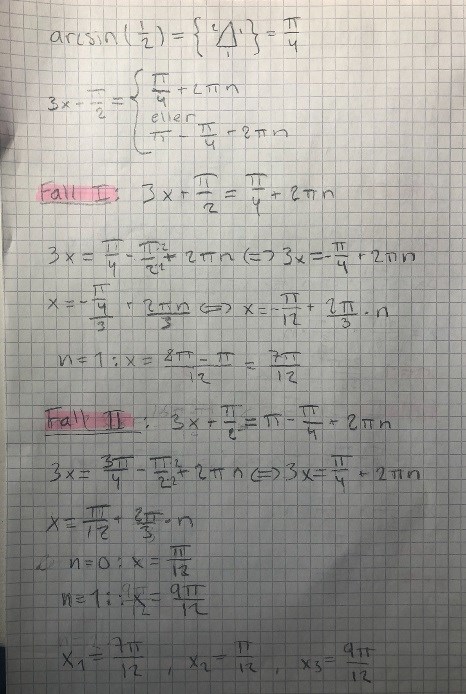 arcsin(1/2) = { 2 1 1 } = π/4
3x - π/2 = { π/4 + 2πn
eller
π - π/4 + 2πn
Fall I: 3x + π/2 = π/4 + 2πn
3x = π/4 - π·2/2·2 + 2πn ⇔ 3x = -π/4 + 2πn
x = -π/4/3 + 2πn/3 ⇔ x = -π/12 + 2π/3 · n
n=1: x = 8π - π/12 = 7π/12
Fall II: 3x + π/2 = π - π/4 + 2πn
3x = 3π/4 - π·2/2·2 + 2πn ⇔ 3x = π/4 + 2πn
x = π/12 + 2π/3 · n
n=0: x = π/12
n=1: x = 9π/12
x₁ = 7π/12 , x₂ = π/12 , x₃ = 9π/12